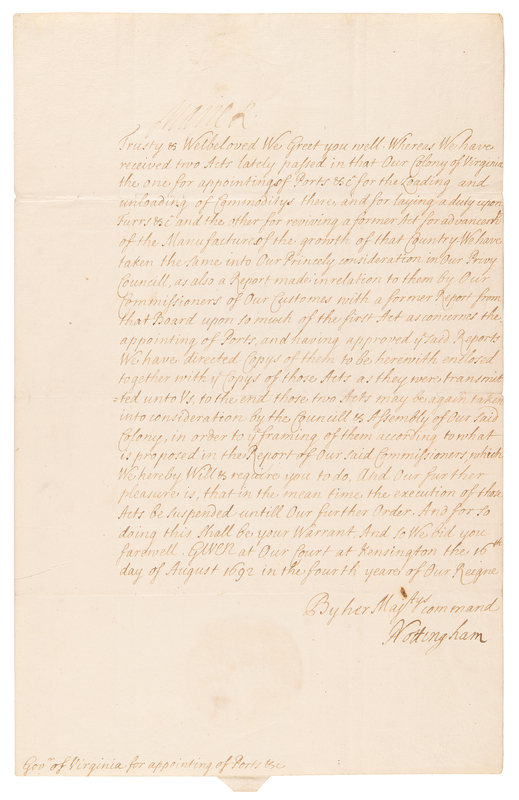 Marie R
Trusty & Welbeloved We Greet you well. Whereas We have
received two Acts lately passed in that Our Colony of Virginia
the one for appointing of Ports &c for the Loading and
unloading of Commoditys there, and for laying a duty upon
Furrs &c and the other for reviving a former Act for advancemt
of the Manufactures of the growth of that Country. We have
taken the same into Our Princely consideration in Our Privy
Councill, as also a Report made in relation to them by Our
Commissioners of Our Customes with a former Report from
that Board upon so much of the first Act as concerns the
appointing of Ports, and having approved ye said Reports
We have directed Copys of them to be herewith enclosed
together with ye Copys of those Acts as they were transmit
=ted unto Us, to the end those two Acts may be again taken
into consideration by the Councill & Assembly of Our said
Colony, in order to ye framing of them according to what
is proposed in the Report of Our said Commissioners, which
We hereby Will & require you to do. And Our further
pleasure is, that in the mean time the execution of those
Acts be suspended untill Our further Order. And for so
doing this shall be your Warrant. And so We bid you
farewell. Given at Our Court at Kensington the 16th
day of August 1692 in the fourth yeare of Our Reigne
By her Majtys command
Nottingham
Govr of Virginia for appointing of Ports &c